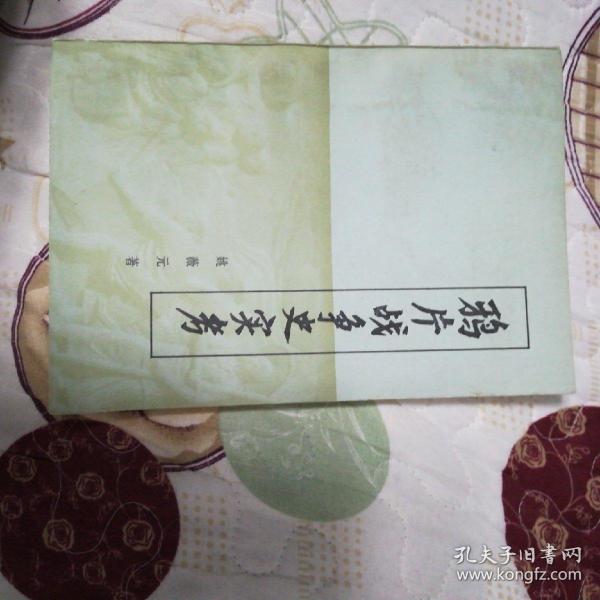 鸦片战争史实考
姚薇元 著
孔夫子旧書网
www.kongfz.com